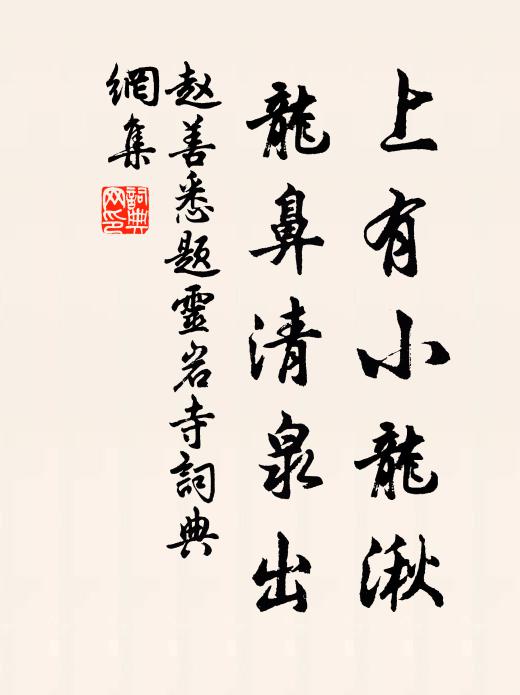 上有小龍湫
龍鼻清泉出
赵善悉题靈岩寺詞典
網集
詞典網印